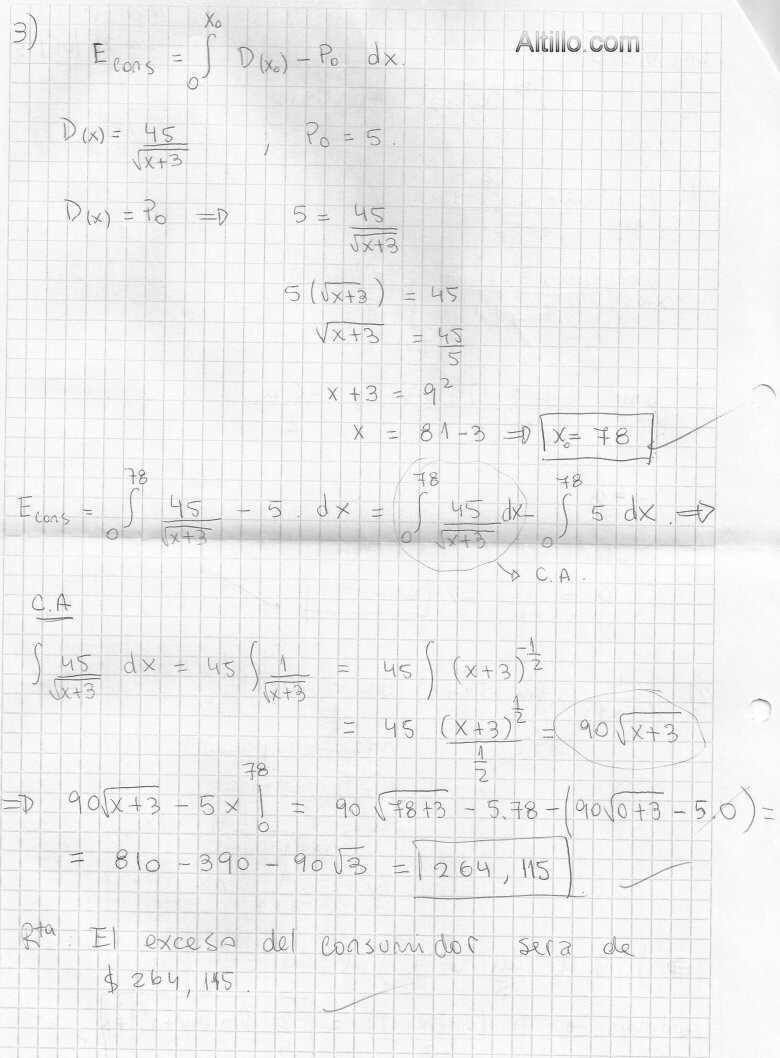 3)
Altillo.com
E cons = ∫₀^x₀ D(x₀) - P₀ dx.
D(x) = 45/√(x+3) , P₀ = 5.
D(x) = P₀ ⇒ 5 = 45/√(x+3)
5(√(x+3)) = 45
√(x+3) = 45/5
x + 3 = 9²
x = 81 - 3 ⇒ x₀ = 78
E cons = ∫₀^78 45/√(x+3) - 5 . dx = ∫₀^78 45/√(x+3) dx - ∫₀^78 5 dx. ⇒
→ C.A.
C.A
∫ 45/√(x+3) dx = 45 ∫ 1/√(x+3) = 45 ∫ (x+3)^-1/2
= 45 (x+3)^1/2 / 1/2 = 90 √(x+3)
⇒ 90√(x+3) - 5x |₀^78 = 90 √(78+3) - 5.78 - (90√(0+3) - 5.0) =
= 810 - 390 - 90√3 = 264,115
Rta. El exceso del consumidor sera de
$ 264,115.